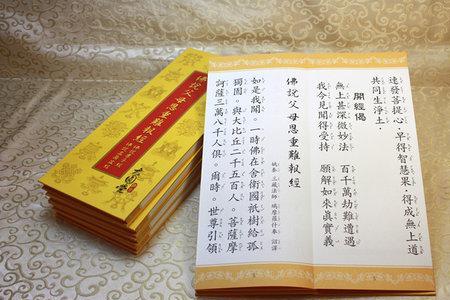 速發菩提心．早得智慧果．得成無上道
共同生淨土．
開經偈
無上甚深微妙法　百千萬劫難遭遇
我今見聞得受持　願解如來真實義
佛說父母恩重難報經
姚秦 三藏法師 鳩摩羅什奉 詔譯
如是我聞。一時佛在舍衛國祇樹給孤
獨園。與大比丘二千五百人。菩薩摩
訶薩三萬八千人俱。爾時。世尊引領
佛說父母恩重難報經